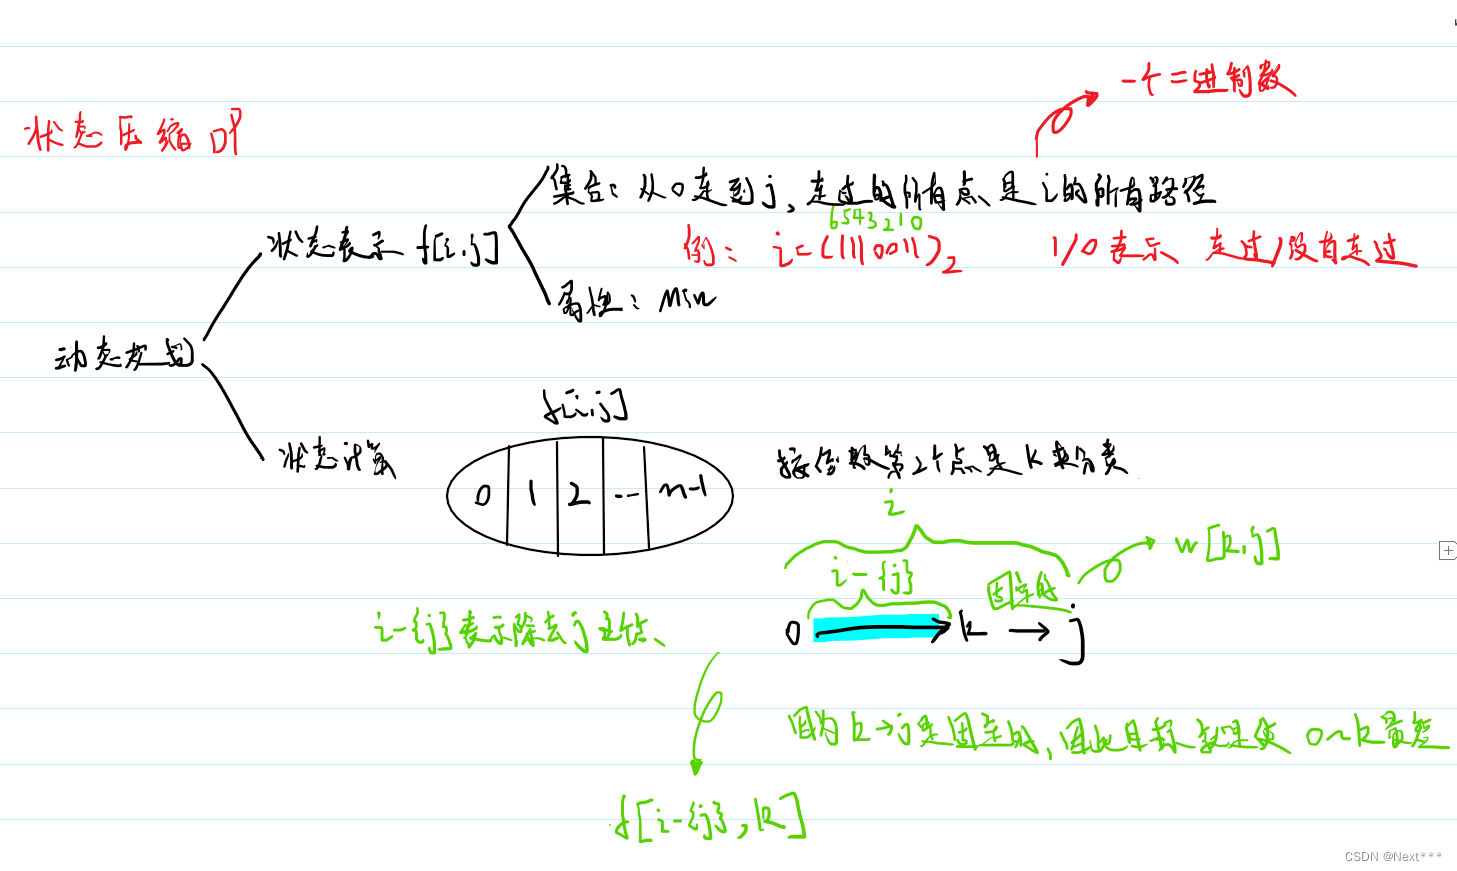 一个二进制数
状态压缩 DP
集合: 从0走到j, 走过的所有点是i的所有路径
6543210
例: i=(1110011)₂ 1/0表示 走过/没有走过
状态表示 f[i,j]
属性: Min
动态规划
f[i,j]
状态计算
0 1 2 ... n-1
按倒数第2个点是k来分类
i
w[k,j]
i-{j}
固定的
i-{j}表示除去j之后
0 → k → j
因为k→j是固定的, 因此目标就是使 0~k最短
f[i-{j}, k]
CSDN @Next***